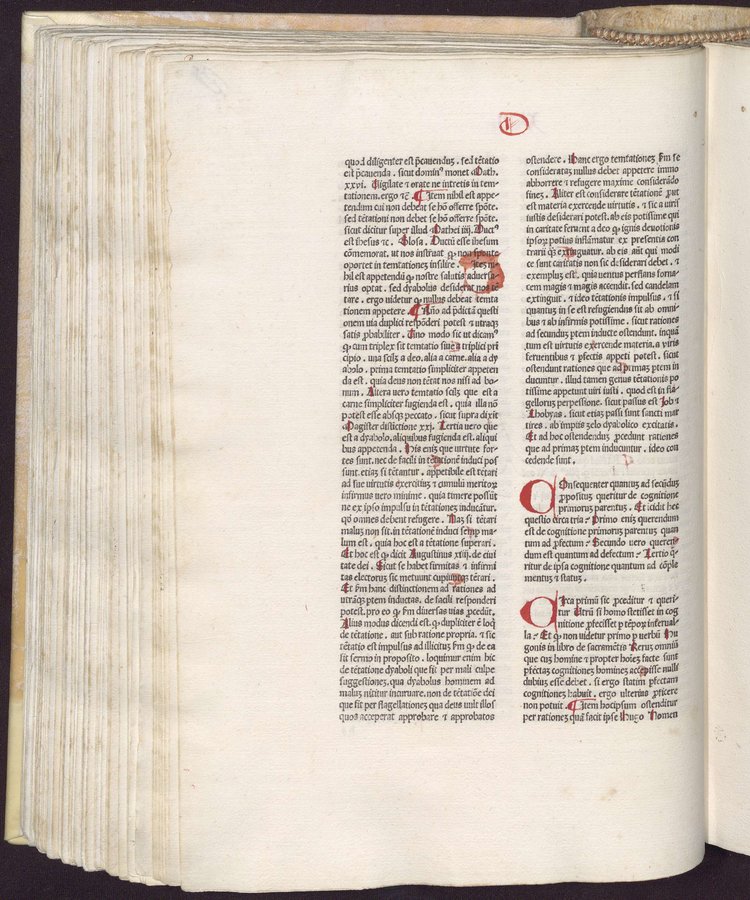 D
quod diligenter est p̄cauendus . sed tētatio
est p̄cauenda . sicut domin⁹ monet Math.
xxvi. Vigilate ⁊ orate ne intretis in tem-
tationem. ergo ⁊c̄ Item nihil est appe-
tendum cui non debeat se hō offerre spōte.
sed tētationi non debet se hō offerre spōte.
sicut dicitur super illud Mathei iiij. Duct⁹
est ihesus ⁊c . Glosa . Ductū esse ihesum
cōmemorat. ut nos instruat ꝙ non sponte
oportet in temtationez insilire. Itez ni-
hil est appetendū qd nostre salutis aduersa-
rius optat . sed dyabolus desiderat nos tē-
tare . ergo videtur ꝙ nullus debeat temta
tionem appetere Rn̄o ad p̄dictā questi
onem uia duplici respōderi potest ⁊ utraqꝫ
satis p̄babiliter. Vno modo sic ut dicam⁹
ꝙ cum triplex sit temtatio siue a triplici pri
cipio . una scilꝫ a deo. alia a carne. alia a dy
abolo . prima temtatio simpliciter appeten
da est . quia deus non tētat nos nisi ad bo-
num . Altera uero temtatio scilꝫ que est a
carne simpliciter fugienda est . quia illa nō
potest esse absqꝫ peccato . sicut supra dixit
Magister distictione xxi. Tertia uero que
est a dyabolo. aliquibus fugienda est. aliqui
bus appetenda . His enīz que uirtute for-
tes sunt. nec de facili in tētatione induci pos
sunt. etiaz si tētantur . appetibile est tētari
ad sue uirtutis exercitiuz ⁊ cumulū meritoꝝ
infirmus uero minime . quia timere possūt
ne ex ipso impulsu in tētationez inducātur.
qd omnes debent refugere . Naz si tētari
maluz non sit. in tētationez induci semp ma
lum est . quia hoc est a tētatione superari.
Et hoc est ꝙ dicit Augustinus xiiij. de ciui
tate dei . Sicut se habet firmitas ⁊ infirmi
tas electorus sic metuunt cupiuntqꝫ tētari.
Et fm hanc distinctionem ad rationes ad
utrāqꝫ ptem inductas. de facili responderi
potest. pro eo ꝙ fm diuersas uias p̄cedūt.
Alius modus dicendi est. ꝙ dupliciter ē loq
de tētatione . aut sub ratione propria. ⁊ sic
tētatio est impulsus ad illicitus fm ꝙ de ea
sit sermo in proposito . loquimur enim hic
de tētatione dyaboli que fit per mali culpe
suggestionez. qua dyabolus hominem ad
maluz nititur incuruare. non de tētatiōe dei
que fit per flagellationez qua deus uult illos
quos acceperat approbare ⁊ approbatos
ostendere . Hanc ergo temtationez fm se
consideratas nullus debet appetere immo
abhorrere ⁊ refugere maxime considerādo
finez . Aliter est considerare tētationē put
est materia exercende uirtutis . ⁊ sic a uiris
iustis desiderari potest. ab eis potissime qui
in caritate feruent a deo ꝙ ignis deuotionis
ipsoꝝ potius inflāmatur ex presentia con
trarij qz extinguatur. ab eis aūt qui modi
ce sunt caritatis non sic desiderari debet. ⁊
exemplus est. quia uentus perflans forna-
cem magis ⁊ magis accendit. sed candelam
extinguit . ⁊ ideo tētationis impulsus . ⁊ si
quantuz in se est refugiendus sit ab omni-
bus ⁊ ab infirmis potissime. sicut rationes
ad secundus ptem inducte ostendunt. inquā
tum est uirtutis exercende materia. a uiris
feruentibus ⁊ pfectis appeti potest. sicut
ostendunt rationes que ad primaz ptem in
ducuntur. illud tamen genus tētationis po
tissime appetunt uiri iusti . quod est in fla-
gelloruz perpessione. sicut passus est Iob ⁊
Thobyas . sicut etiaz passi sunt sancti mar
tires . ab impiis zelo dyabolico excitatis .
Et ad hoc ostendendus p̄cedunt rationes
que ad primas ptem inducuntur . ideo con
cedende sunt .
COnsequenter quantus ad secūdus
p̄positus queritur de cognitione
primoruz parentuz . Et icidit hec
questio circa tria. Primo enīz querendum
est de cognitione primoruz parentuz quan
tum ad p̄fectum . Secundo uero queren
dum est quantum ad defectum. Tertio q̄-
ritur de ipsa cognitione quantum ad cōple
mentuz ⁊ status .
CIrca primū sic p̄ceditur ⁊ queri-
tur Vtrū si homo stetisset in cog
nitione p̄fecisset p tēpoꝝ interual-
la. Et ꝙ non uidetur primo p uerbū Hu
gonis in libro de sacramētis Rerus omniū
que cuz homine ⁊ propter hoīez facte sunt
pfectaz cognitionez hominez accepisse nulli
dubius esse debet . si ergo statim pfectam
cognitionez habuit . ergo ulterius p̄ficere
non potuit . Item hocipsum ostenditur
per rationez quā facit ipse Hugo Homen